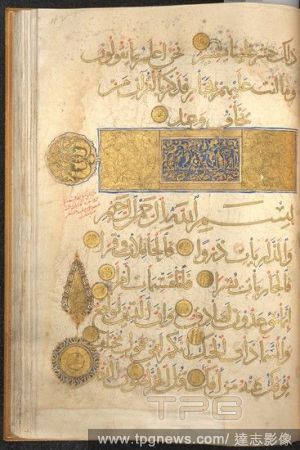 ذلك حشر علينا يسير نحن اعلم بما يقولون
وما انت عليهم بجبار فذكر بالقران من
يخاف وعيد
بسم الله الرحمن الرحيم
والذاريات ذروا فالحاملات وقرا
فالجاريات يسرا فالمقسمات امرا
انما توعدون لصادق وان الدين لواقع
والسماء ذات الحبك انكم لفي قول مختلف
يوفك عنه من افك قتل الخراصون الذين
TPG
www.tpgnews.com/ 達志影像